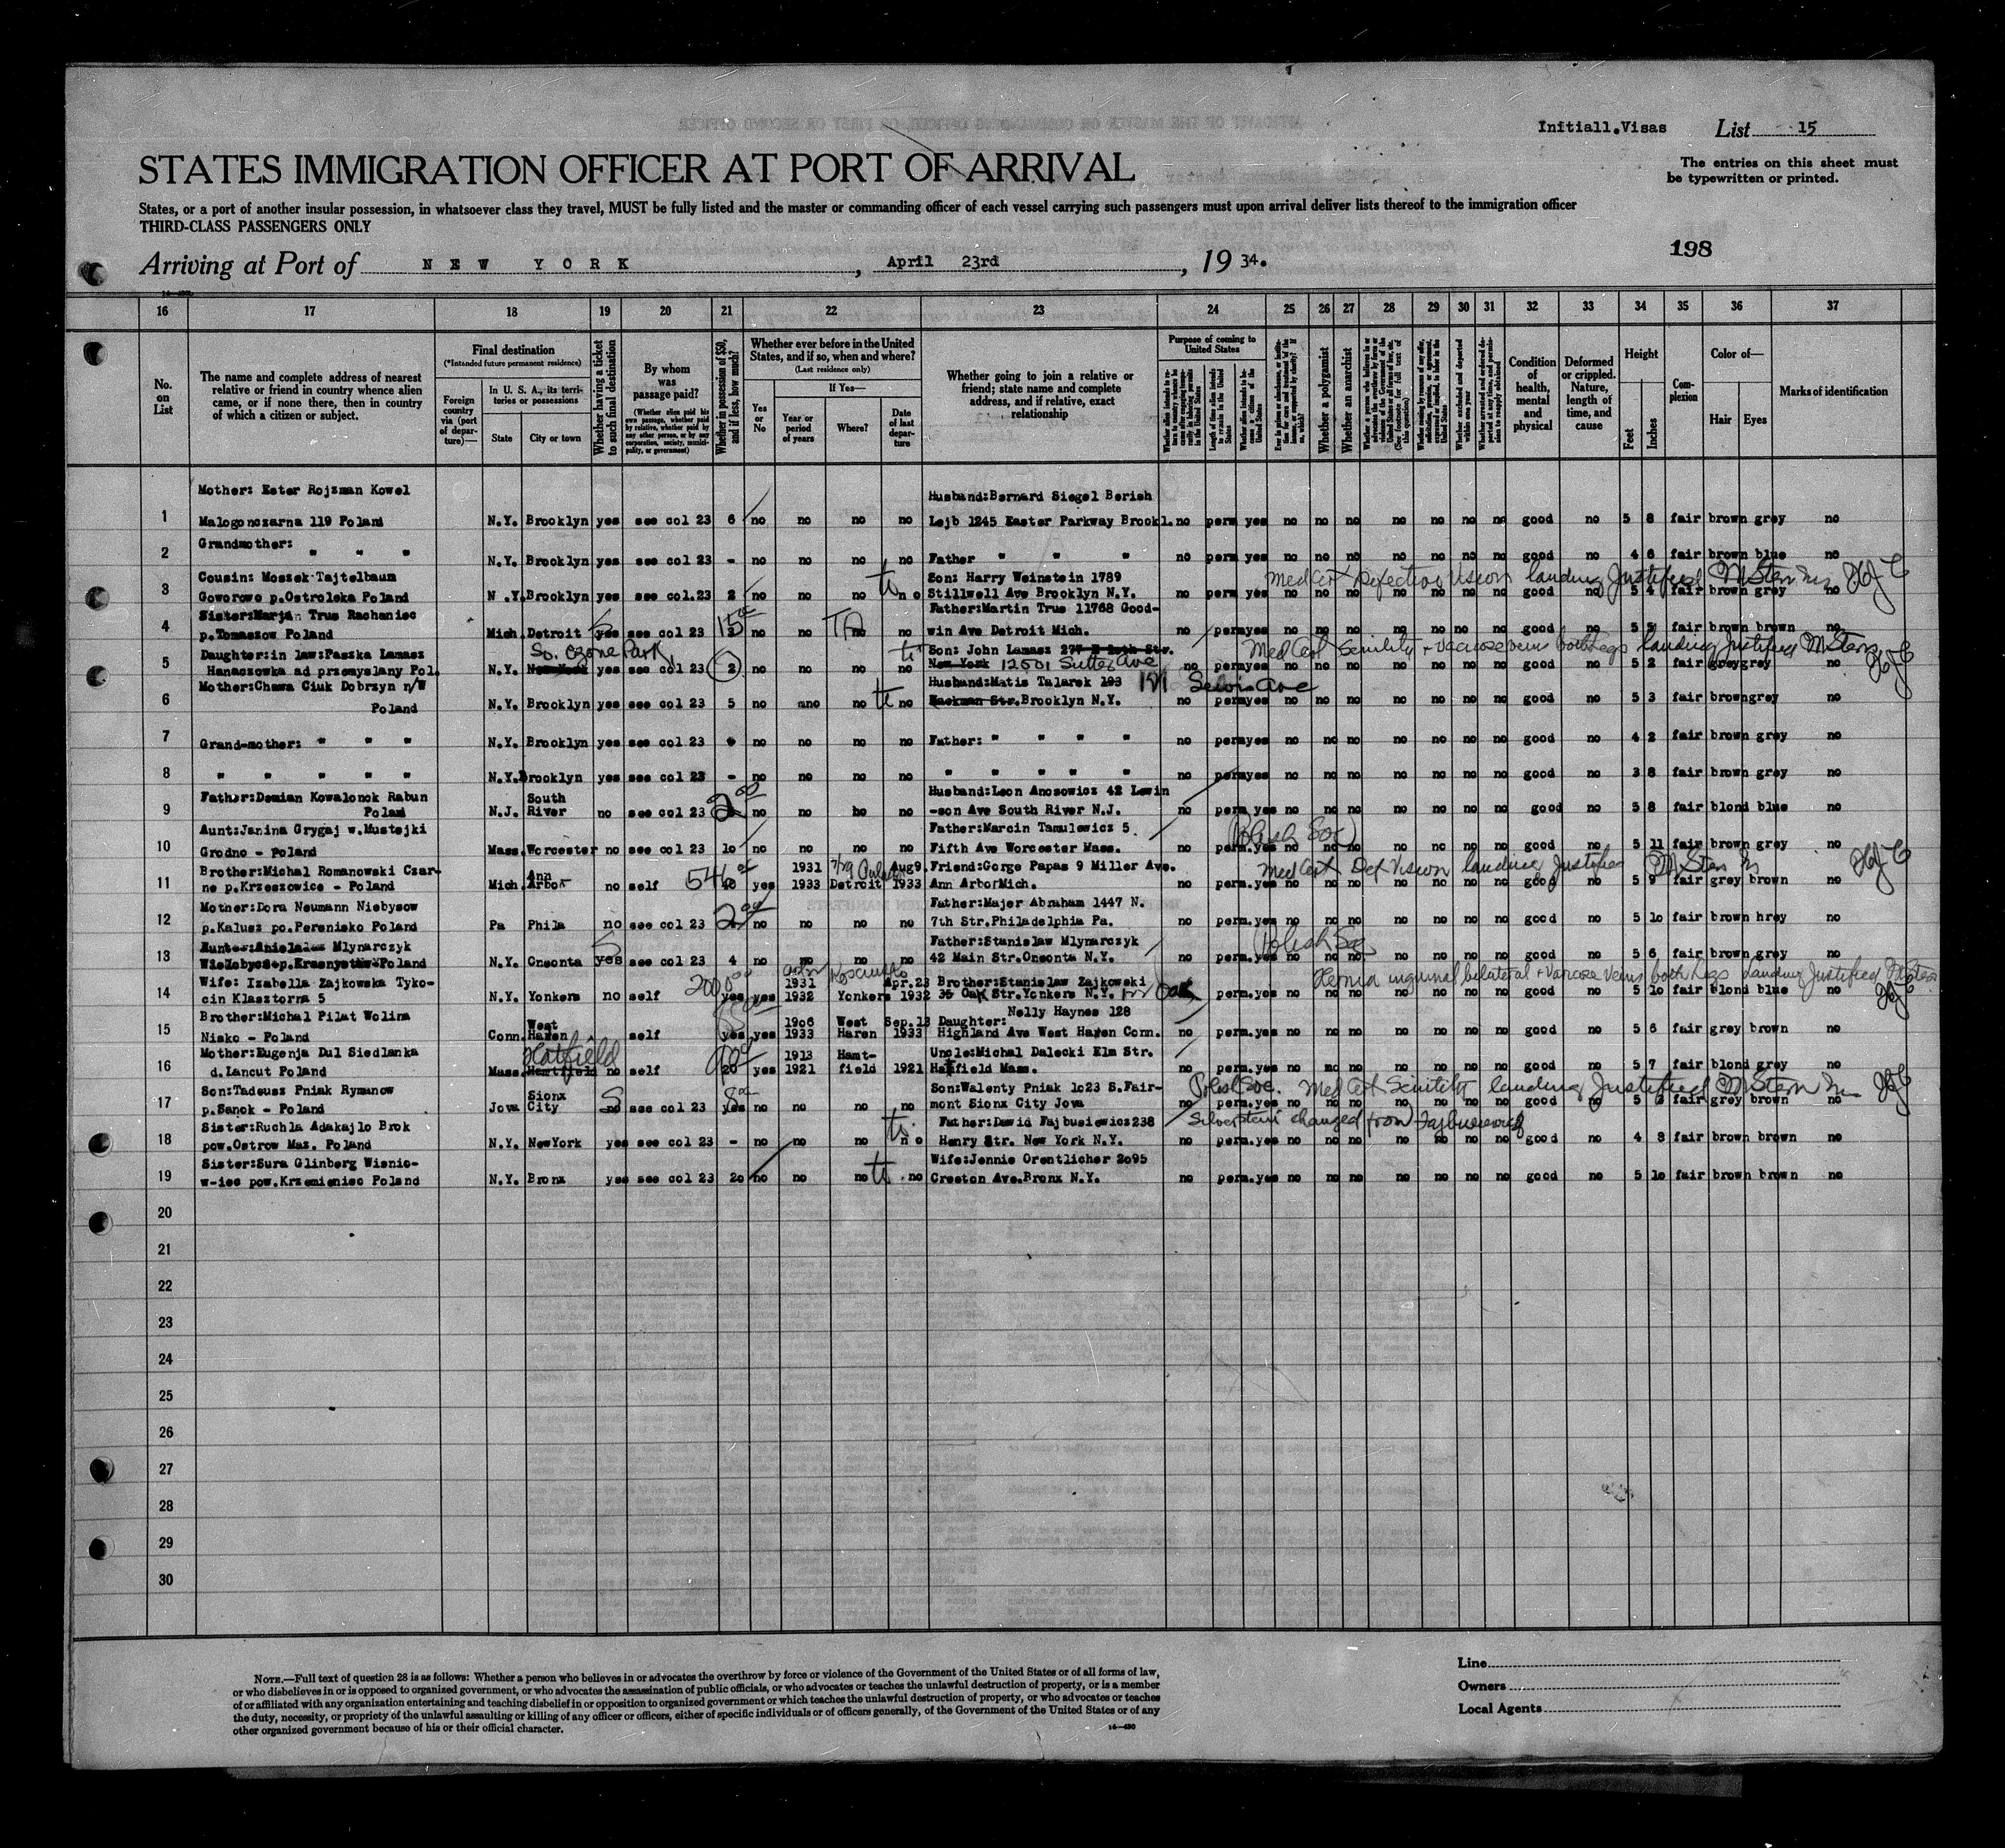 Initiall.Visas List 15
STATES IMMIGRATION OFFICER AT PORT OF ARRIVAL
The entries on this sheet must
be typewritten or printed.
States, or a port of another insular possession, in whatsoever class they travel, MUST be fully listed and the master or commanding officer of each vessel carrying such passengers must upon arrival deliver lists thereof to the immigration officer
THIRD-CLASS PASSENGERS ONLY
198
Arriving at Port of NEW YORK, April 23rd, 19 34.
16 17 18 19 20 21 22 23 24 25 26 27 28 29 30 31 32 33 34 35 36 37
No. on List
The name and complete address of nearest
relative or friend in country whence alien
came, or if none there, then in country
of which a citizen or subject.
Final destination
(*Intended future permanent residence)
Foreign country via (port of departure)—
In U. S. A., its territories or possessions
State City or town
Whether having a ticket to such final destination
By whom was passage paid?
(Whether alien paid his own passage, whether paid by relative, whether paid by any other person, or by any corporation, society, municipality, or government)
Whether in possession of $50, and if less, how much?
Whether ever before in the United
States, and if so, when and where?
(Last residence only)
Yes or No
If Yes—
Year or period of years
Where?
Date of last departure
Whether going to join a relative or
friend; state name and complete
address, and if relative, exact
relationship
Purpose of coming to United States
Whether a polygamist
Whether an anarchist
Condition of health, mental and physical
Deformed or crippled. Nature, length of time, and cause
Height
Feet Inches
Complexion
Color of—
Hair Eyes
Marks of identification
Mother: Ester Rojzman Kowel Husband:Bernard Siegel Berish
1 Malogonczarna 119 Poland N.Y. Brooklyn yes see col 23 6 no no no no Lejb 1245 Easter Parkway Brookl. no perm yes no no no no no no no good no 5 8 fair brown grey no
Grandmother:
2 " " " N.Y. Brooklyn yes see col 23 - no no no no Father " " " no perm yes no no no no no no no good no 4 6 fair brown blue no
Cousin: Moszek Tajtelbaum Son: Harry Weinstein 1789 Med Cert Defective Vision landing Justified
3 Goworowo p.Ostroleka Poland N.Y. Brooklyn yes see col.23 2 no no no no Stillwell Ave Brooklyn N.Y. no perm yes no no no no no no no good no 5 4 fair brown grey no
Sister:Marja Trus Rachaniec Father:Martin Trus 11768 Good-
4 p.Tomaszow Poland Mich. Detroit yes see col 23 15 no no no no win Ave Detroit Mich. no perm yes no no no no no no no good no 5 5 fair brown brown no
Daughter:in law:Paszka Lamasz So. Ozone Park Son: John Lamasz 277 E 10th Str. Med Cert Senility + Varicose veins both legs landing Justified
5 Hanaczowka ad przemyslany Pol. N.Y. New York yes see col 23 2 no no no no New York 12501 Sutter Ave no perm yes no no no no no no no good no 5 2 fair grey grey no
Mother:Chawa Ciuk Dobrzyn n/W Husband:Matis Talarek 193
6 Poland N.Y. Brooklyn yes see col 23 5 no no no no Hackman Str.Brooklyn N.Y. no perm yes no no no no no no no good no 5 3 fair brown grey no
7 Grand-mother: " " " N.Y. Brooklyn yes see col 23 no no no no Father: " " " " no perm yes no no no no no no no good no 4 2 fair brown grey no
8 " " " " " N.Y. Brooklyn yes see col 23 - no no no no " " " " " no perm yes no no no no no no no good no 3 8 fair brown grey no
Father:Demian Kowalonok Rabun South Husband:Leon Anosowicz 42 Lewin
9 Poland N.J. River no see col 23 no no ho no -son Ave South River N.J. no perm.yes no no no no no no no good no 5 8 fair blond blue no
Aunt:Janina Grygaj w.Mustejki Father:Marcin Tamulewicz 5 Polish Soc
10 Grodno - Poland Mass. Worcester no see col 23 10 no no no no Fifth Ave Worcester Mass. no perm.yes no no no no no no no good no 5 11 fair brown grey no
Brother:Michal Romanowski Czar- Ann 1931 Aug9. Friend:Gorge Papas 9 Miller Ave. Med Cert Def Vision landing Justified
11 ne p.Krzeszowice - Poland Mich. Arbor no self yes 1933 Detroit 1933 Ann ArborMich. no perm.yes no no no no no no no good no 5 9 fair grey brown no
Mother:Dora Neumann Niebysow Father:Majer Abraham 1447 N.
12 p.Kalusz po.Perenisko Poland Pa Phila no see col 23 no no no no 7th Str.Philadelphia Pa. no perm.yes no no no no no no no good no 5 10 fair brown hrey no
Mlynarczyk Father:Stanislaw Mlynarczyk Polish Soc
13 Poland N.Y. Oneonta yes see col 23 4 no no no no 42 Main Str.Oneonta N.Y. no perm.yes no no no no no no no good no 5 6 fair brown grey no
Wife: Izabella Zajkowska Tyko- 1931 Apr.23 Brother:Stanislaw Zajkowski Hernia inguinal bilateral + Varicose Veins both legs landing Justified
14 cin Klasztorna 5 N.Y. Yonkers no self yes yes 1932 Yonkers 1932 Oak Str.Yonkers N.Y. perm.yes no no no no no no no good no 5 10 fair blond blue no
Brother:Michal Pilat Wolina West 1906 West Sep.13 Daughter: Nelly Haynes 128
15 Nisko - Poland Conn. Haven self yes yes 1933 Haren 1933 Highland Ave West Haven Conn. no perm.yes no no no no no no no good no 5 6 fair grey brown no
Mother:Eugenja Dul Siedlanka Hatfield 1913 Hamt- Uncle:Michal Dalecki Elm Str.
16 d.Lancut Poland Mass. no self 20 yes 1921 field 1921 Hatfield Mass. no perm.yes no no no no no no no good no 5 7 fair blond grey no
Son:Tadeusz Pniak Rymanow Sionx Son:Walenty Pniak 1023 S.Fair- Polish Soc. Med Cert Senility landing Justified
17 p.Sanok - Poland Jova City no see col 23 yes no no no no mont Sionx City Jova no perm.yes no no no no no no no good no 5 3 fair grey brown no
Sister:Ruchla Adakajlo Brok Father:Dawid Fajbusiewicz238 Silverstein changed from Fajbusiewicz
18 pow.Ostrow Maz. Poland N.Y. NewYork yes see col 23 - no no no no Henry Str. New York N.Y. no perm.yes no no no no no no no good no 4 8 fair brown brown no
Sister:Sura Glinberg Wisnio- Wife:Jennie Orentlicher 2095
19 w-iec pow.Krzemieniec Poland N.Y. Bronx yes see col 23 20 no no no no Creston Ave.Bronx N.Y. no perm.yes no no no no no no no good no 5 10 fair brown brown no
20
21
22
23
24
25
26
27
28
29
30
NOTE.—Full text of question 28 is as follows: Whether a person who believes in or advocates the overthrow by force or violence of the Government of the United States or of all forms of law,
or who disbelieves in or is opposed to organized government, or who advocates the assassination of public officials, or who advocates or teaches the unlawful destruction of property, or is a member
of or affiliated with any organization entertaining and teaching disbelief in or opposition to organized government or which teaches the unlawful destruction of property, or who advocates or teaches
the duty, necessity, or propriety of the unlawful assaulting or killing of any officer or officers, either of specific individuals or of officers generally, of the Government of the United States or of any
other organized government because of his or their official character.
14—430
Line
Owners
Local Agents